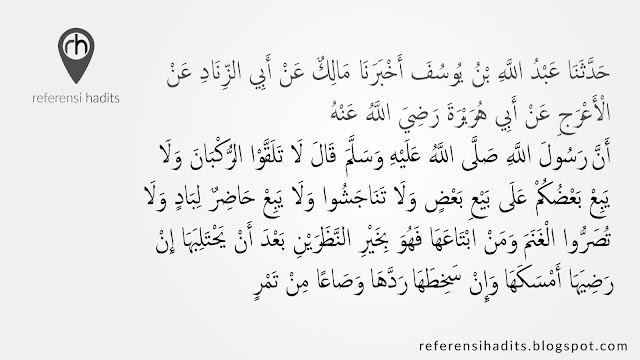 rh
referensi hadits
حَدَّثَنَا عَبْدُ اللَّهِ بْنُ يُوسُفَ أَخْبَرَنَا مَالِكٌ عَنْ أَبِي الزِّنَادِ عَنْ
الْأَعْرَجِ عَنْ أَبِي هُرَيْرَةَ رَضِيَ اللَّهُ عَنْهُ
أَنَّ رَسُولَ اللَّهِ صَلَّى اللَّهُ عَلَيْهِ وَسَلَّمَ قَالَ لَا تَلَقَّوْا الرُّكْبَانَ وَلَا
يَبِعْ بَعْضُكُمْ عَلَى بَيْعِ بَعْضٍ وَلَا تَنَاجَشُوا وَلَا يَبِعْ حَاضِرٌ لِبَادٍ وَلَا
تُصَرُّوا الْغَنَمَ وَمَنْ ابْتَاعَهَا فَهُوَ بِخَيْرِ النَّظَرَيْنِ بَعْدَ أَنْ يَحْتَلِبَهَا إِنْ
رَضِيَهَا أَمْسَكَهَا وَإِنْ سَخِطَهَا رَدَّهَا وَصَاعًا مِنْ تَمْرٍ
referensihadits.blogspot.com